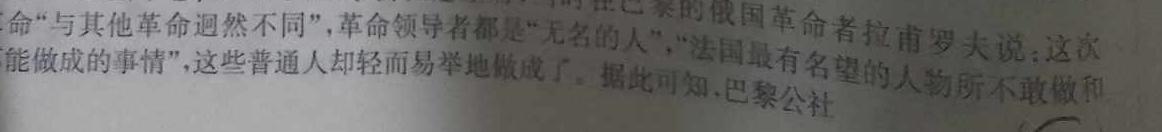 时在巴黎的俄国革命者拉甫罗夫说：这次
命“与其他革命迥然不同”，革命领导者都是“无名的人”，“法国最有名望的人物所不敢做和
能做成的事情”，这些普通人却轻而易举地做成了。据此可知，巴黎公社